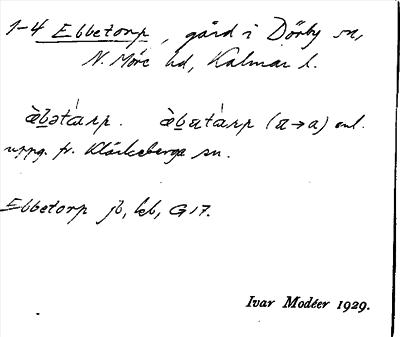 1-4 Ebbetorp, gård i Dörby sn,
N. Möre hd, Kalmar l.
æ̀bətárp. æ̀batárp (a→a) enl.
uppg. fr. Kläckeberga sn.
Ebbetorp jb, kb, G 17.
Ivar Modéer 1929.